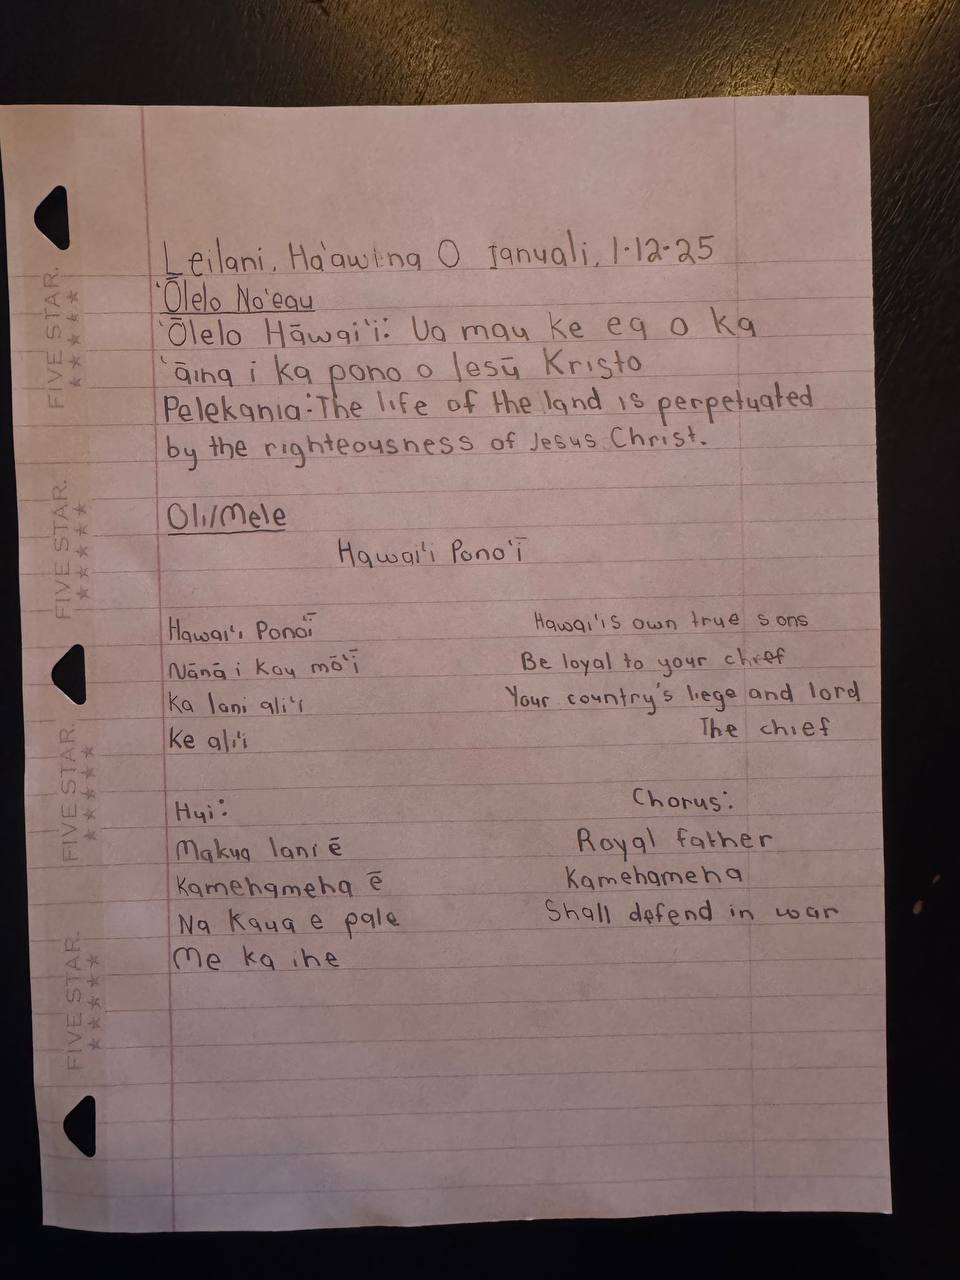 Leilani, Ha'awina O Ianuali, 1-12-25
'Ōlelo No'eau
'Ōlelo Hāwai'i: Ua mau ke ea o ka
'āina i ka pono o Iesū Kristo
Pelekania: The life of the land is perpetuated
by the righteousness of Jesus Christ.
Oli/Mele
Hawai'i Pono'ī
Hawai'i Ponoī Hawai'is own true sons
Nānā i kou mō'ī Be loyal to your chief
Ka lani ali'i Your country's liege and lord
Ke ali'i The chief
Hui: Chorus:
Makua lani ē Royal father
Kamehameha ē Kamehameha
Na kaua e pale Shall defend in war
Me ka ihe
FIVE STAR.
FIVE STAR.
FIVE STAR.
FIVE STAR.